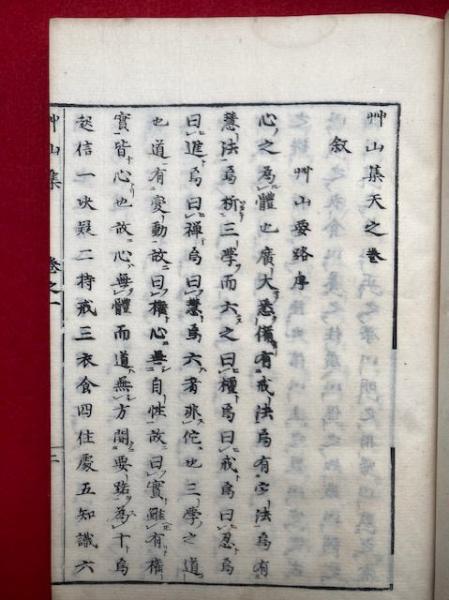 艸山集天之卷
叙
艸山要路序
心之為體也廣大悉備有戒法焉有定法焉有
慧法焉析三學而六之曰檀焉曰戒焉曰忍焉
曰進焉曰禪焉曰慧焉六者非佗也三學之道
也道有變動故曰權心無自性故曰實雖有權
實皆心也故心無體而道無方開要路為十焉
起信一決疑二持戒三衣食四住處五知識六
艸山集
卷之一